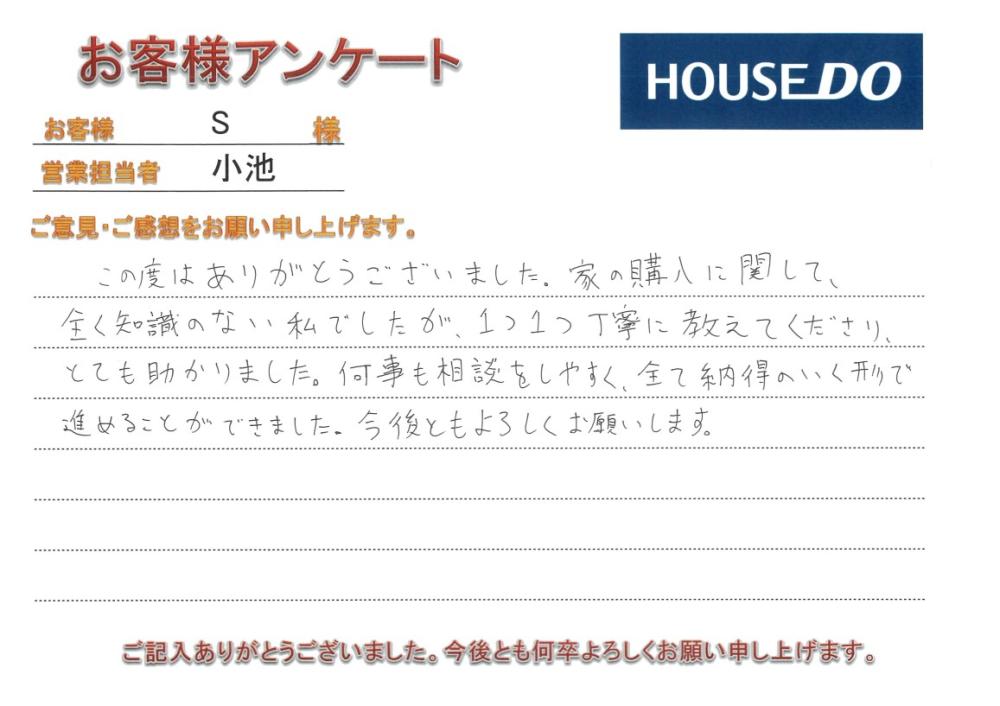 お客様アンケート
HOUSEDO
お客様 S 様
営業担当者 小池
ご意見・ご感想をお願い申し上げます。
この度はありがとうございました。家の購入に関して、
全く知識のない私でしたが、1つ1つ丁寧に教えてくださり、
とても助かりました。何事も相談をしやすく、全て納得のいく形で
進めることができました。今後ともよろしくお願いします。
ご記入ありがとうございました。今後とも何卒よろしくお願い申し上げます。